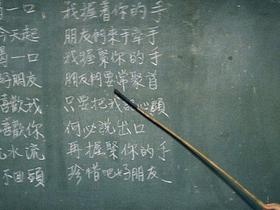 一口 我握着你的手
今天起 朋友們來手牽手
一口 我握緊你的手
好朋友 朋友們要常聚首
喜歡我 只要把我 心頭
喜歡你 何必說出口
水流 再握緊你的手
不回頭 珍惜吧好朋友